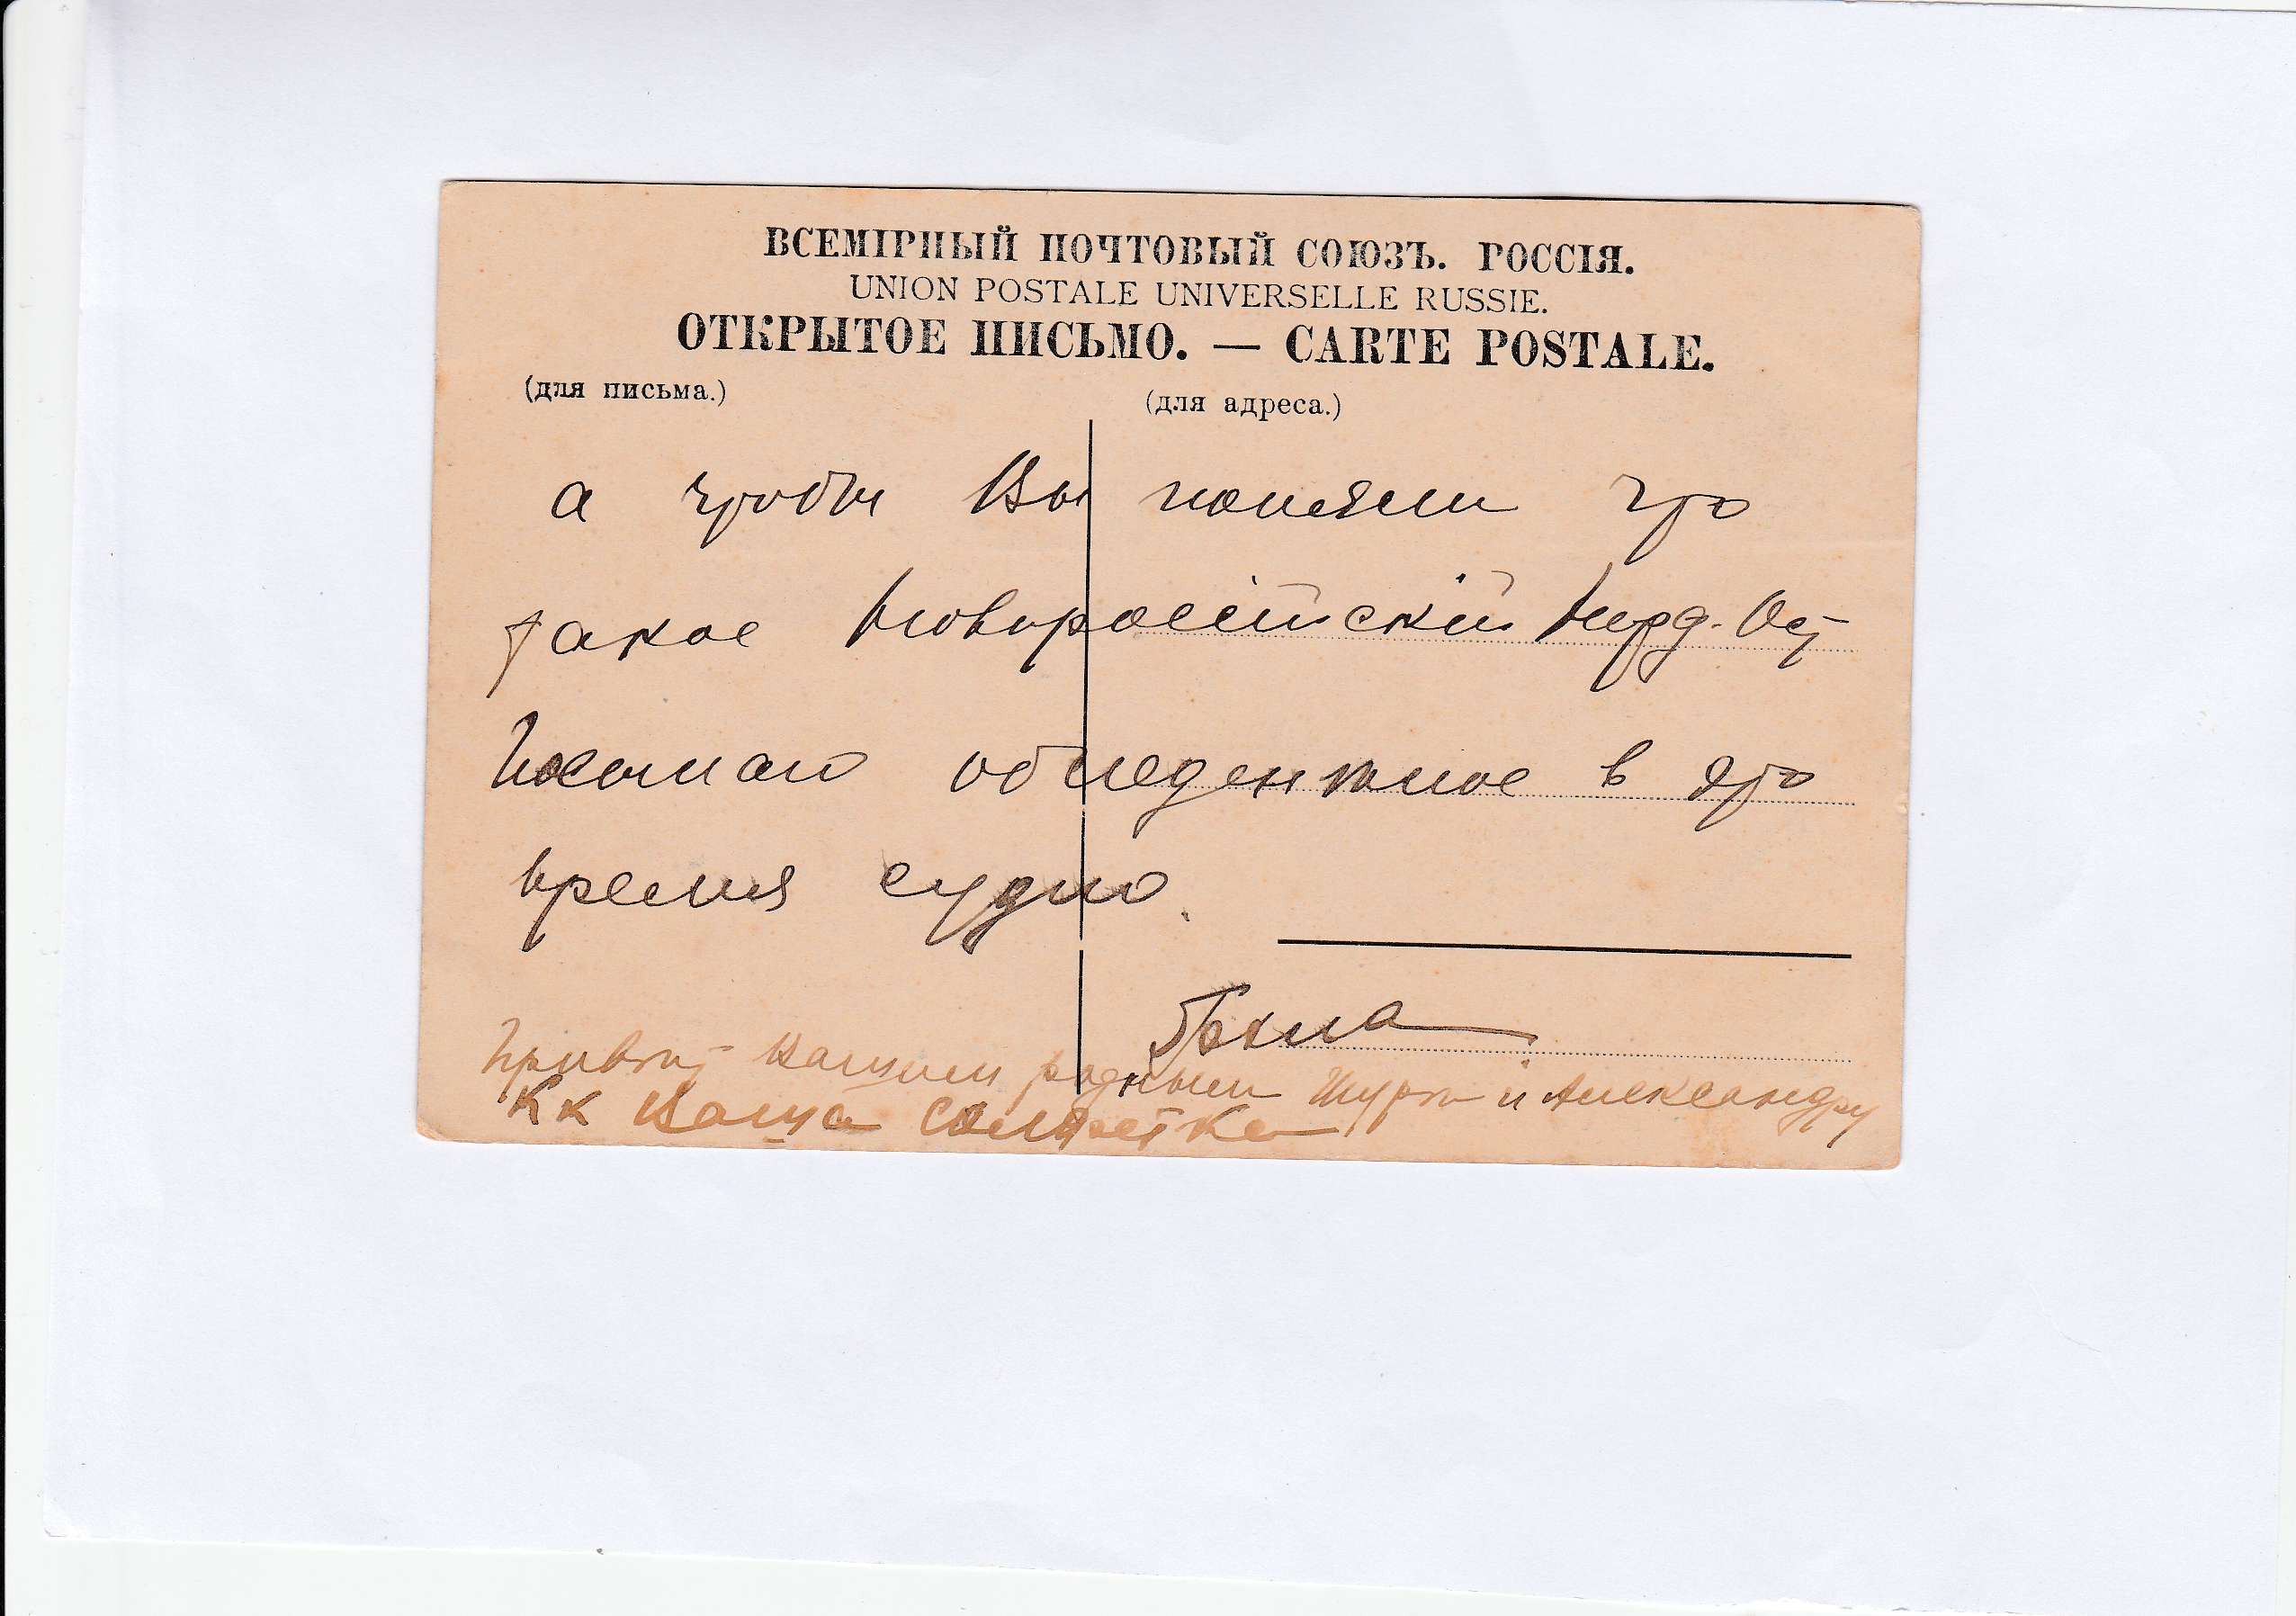 ВСЕМІРНЫЙ ПОЧТОВЫЙ СОЮЗЪ. РОССІЯ.
UNION POSTALE UNIVERSELLE RUSSIE.
ОТКРЫТОЕ ПИСЬМО. — CARTE POSTALE.
(для письма.) (для адреса.)
а чтобы Вы поняли что
такое Новороссійскій Норд-Ост
Посылаю обледентлое в это
время судно.
Привет Вашим родным Шуре и Александру
КК Ваша